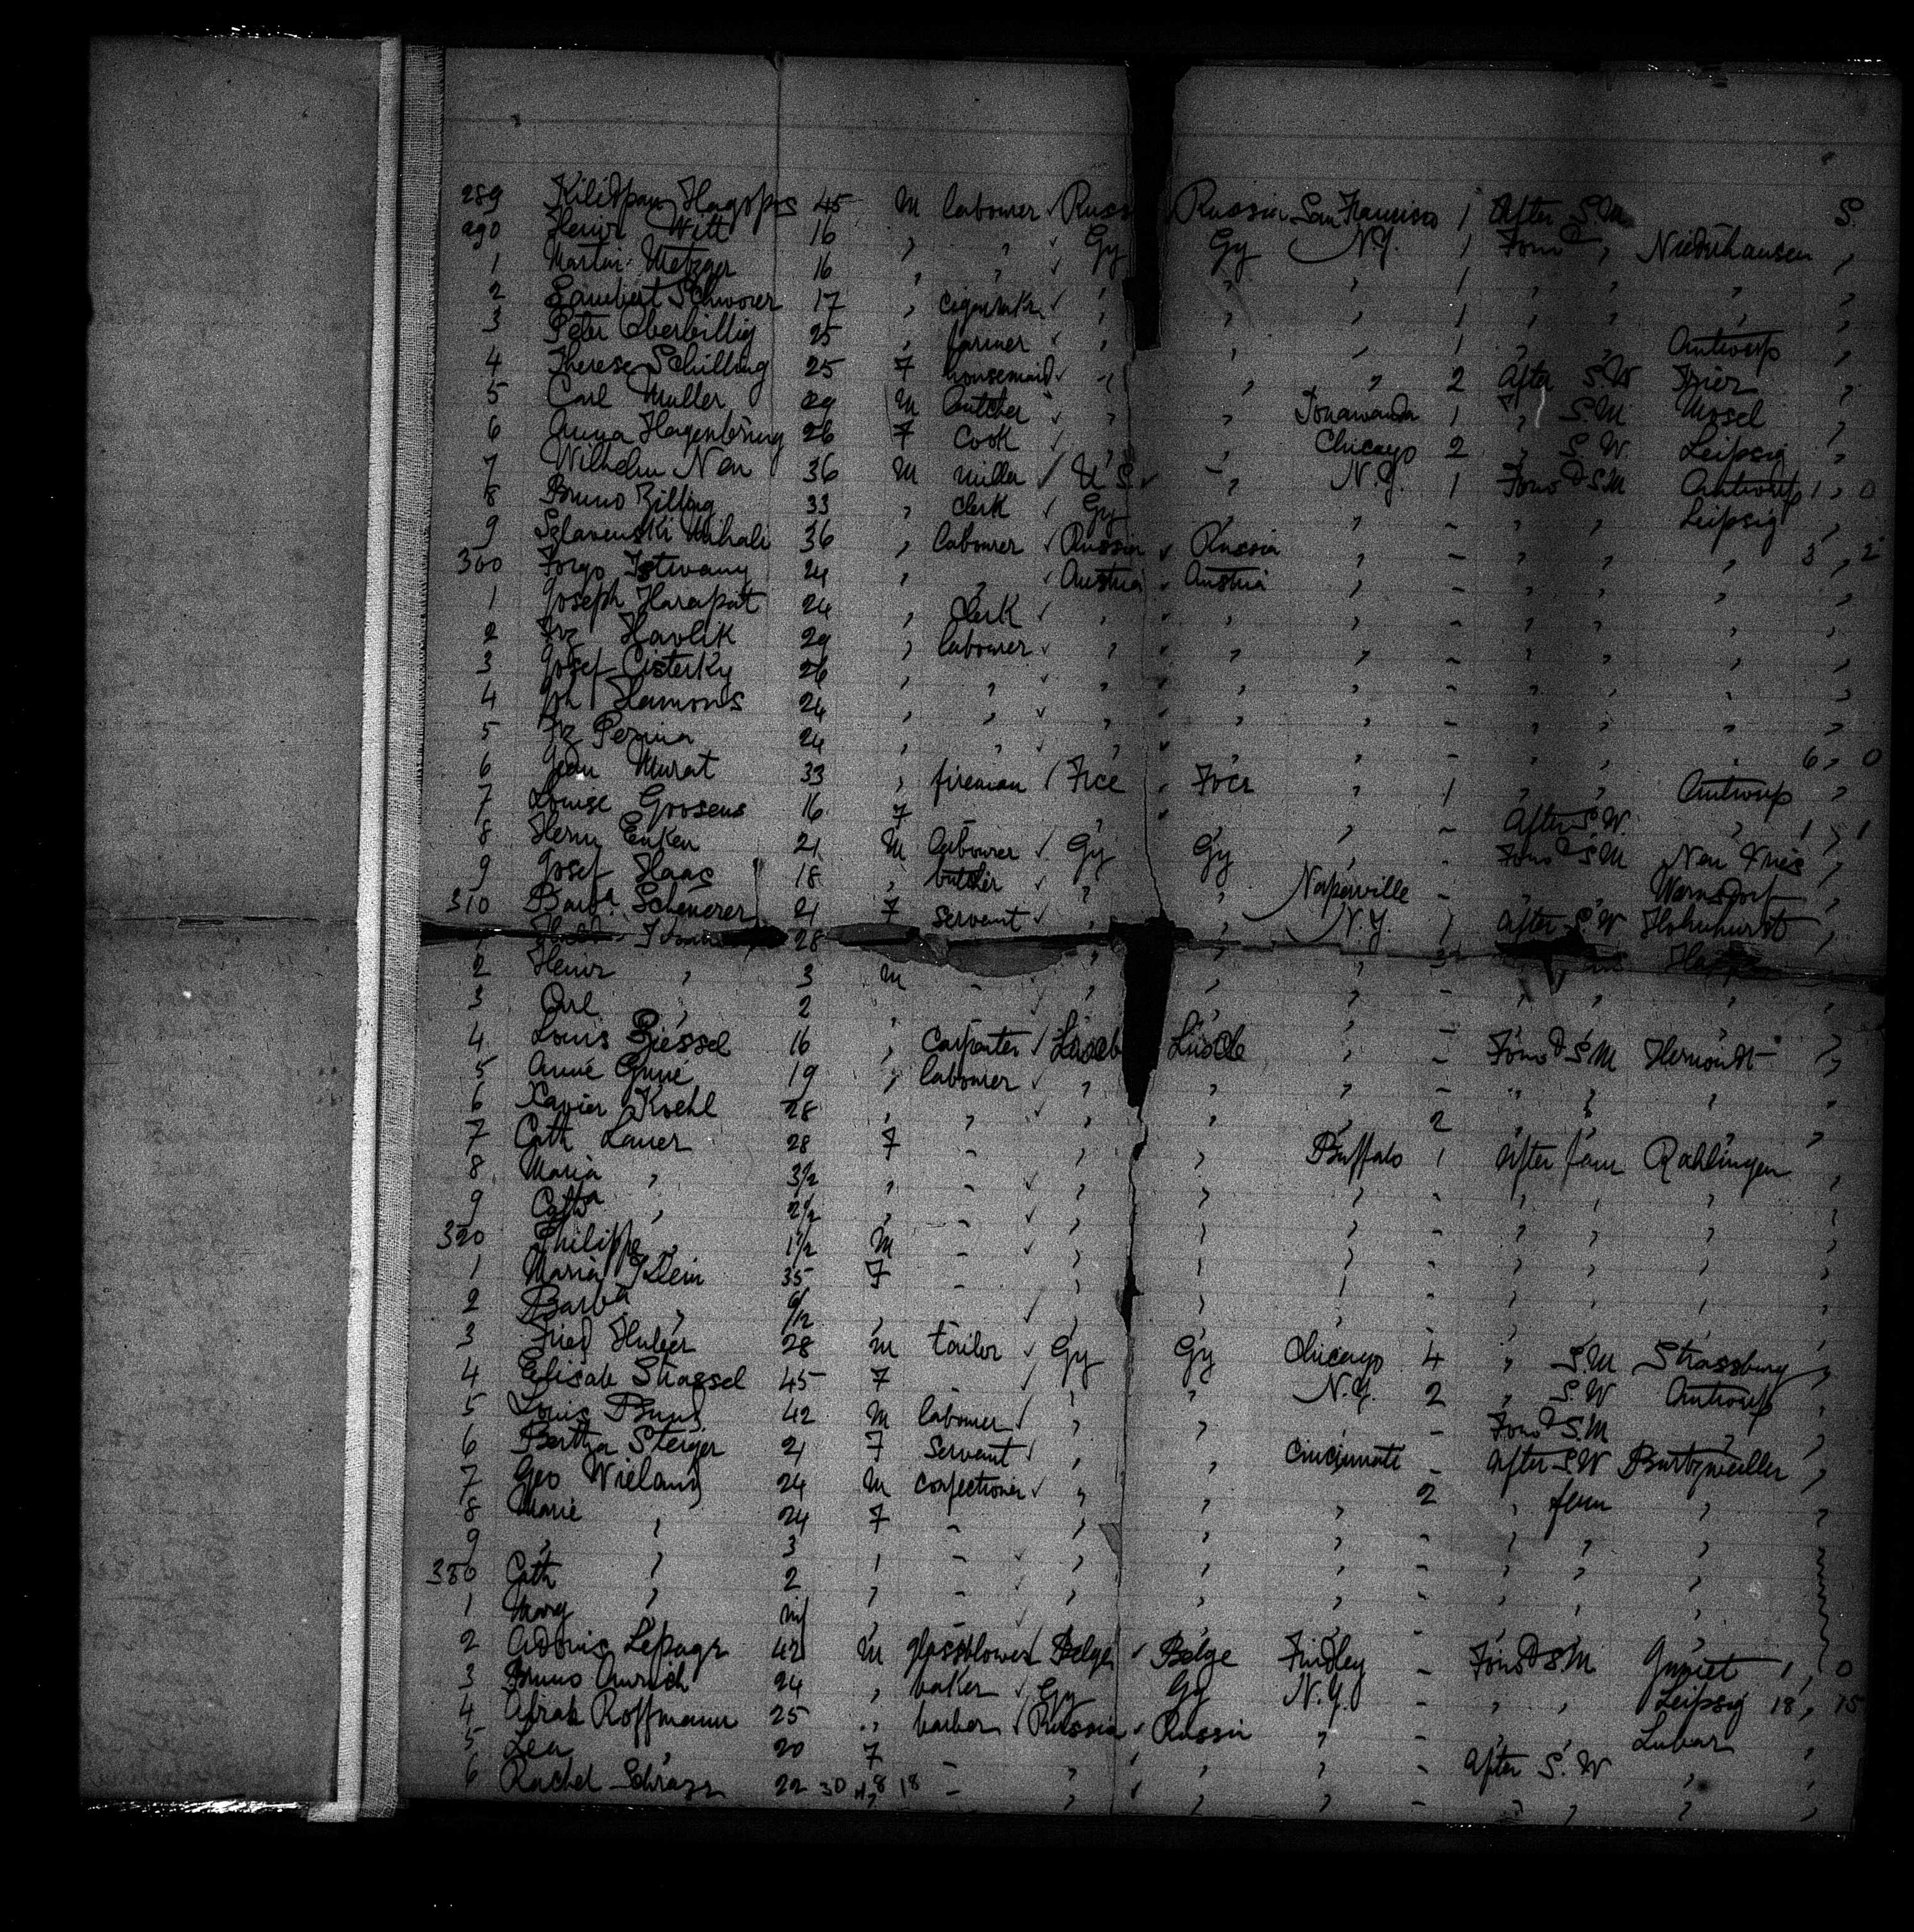 289 Kilidpan Hagops 45 M labourer Russ Russia San Francisco 1 After S.M S.
290 Heinr Witt 16 " " Gy Gy N.Y. 1 Forwd " Niederhausen "
1 Martin Metzger 16 " " " " " 1 " " " "
2 Lambert Schworer 17 " cigarmkr " " " 1 " " " "
3 Peter Oberbillig 25 " farmer " " " 1 " " Antwerp "
4 Therese Schilling 25 F housemaid " " " 2 After S.W Trier "
5 Carl Muller 29 M butcher " " Tonawanda 1 " S.M Mosel "
6 Anna Hagenbring 26 F Cook " " Chicago 2 " S.W. Leipsig "
7 Wilhelm Neu 36 M miller U S " N.Y. 1 Forwd S.M Antwerp 1 " 0
8 Bruno Zilling 33 " clerk Gy " " - " " Leipsig "
9 Szlavenski Mihali 36 " labourer Russia Russia " - " " " 3 " 2
300 Forgo Istvany 24 " " Austria Austria " - " " " "
1 Joseph Harapat 24 " clerk " " " - " " " "
2 Frz Havlik 29 " labourer " " " - " " " "
3 Josef Cisterky 26 " " " " " - " " " "
4 Joh Hamous 24 " " " " " - " " " "
5 Frz Perina 24 " " " " " - " " " 6 " 0
6 Jean Murat 33 " fireman Fce Fce " 1 " " Antwerp "
7 Louise Goosens 16 F " " " - After S.W. " 1 " 1
8 Herm Enken 21 M labourer Gy Gy " - Forwd S.M "
9 Josef Haas 18 " butcher " " Naperville - " " Warnsdorf "
310 Barba Scheuerer 21 F servant " " N.Y. 1 After S.W Hohenhurst "
28 " " " 3
2 Heinr " 3 M - " " " - " " " "
3 Carl " 2 " " " " - " " " "
4 Louis Giessel 16 " Carpenter " - Forwd S.M "
5 Anné 19 " labourer " " " - " " " "
6 Xavier Koehl 28 " " " " " 2 " " " "
7 Cath Lauer 28 F - " " Buffalo 1 After fam Rahlingen "
8 Maria " 3½ " - " " " - " " " "
9 Catha " 2½ " - " " " - " " " "
320 Philippe " 1½ M - " " " - " " " "
1 Maria Klein 35 F - " " " - " " " "
2 Barba " 9/12 " - " " " - " " " "
3 Fried Huber 28 M tailor Gy Gy Chicago 4 " S.M Strassburg "
4 Elisab Strassel 45 F " " N.Y. 2 " S.W Antwerp "
5 Louis 42 M labourer " " - Forwd S.M " "
6 Bertha Steiger 21 F Servant " " Cincinnati - After S.W "
7 Geo Wieland 24 M confectioner " " " 2 " fam " "
8 Marie " 24 F - " " " - " " " "
9 " " 3 " - " " " - " " "
330 Cath " 2 " - " " " - " " "
1 Marg " inf
2 Adonis Lepage 42 M glassblower Belge Belge Findley - Forwd S.M 1 " 0
3 Bruno 24 " baker Gy Gy N.Y. - " " Leipsig 18 " 15
4 Abrah Roffmann 25 " barber Russia Russia " - Lubar "
5 Lea " 20 F - " " " - After S.W " "
6 Rachel 22 30 48 18 - " " " - " " " "